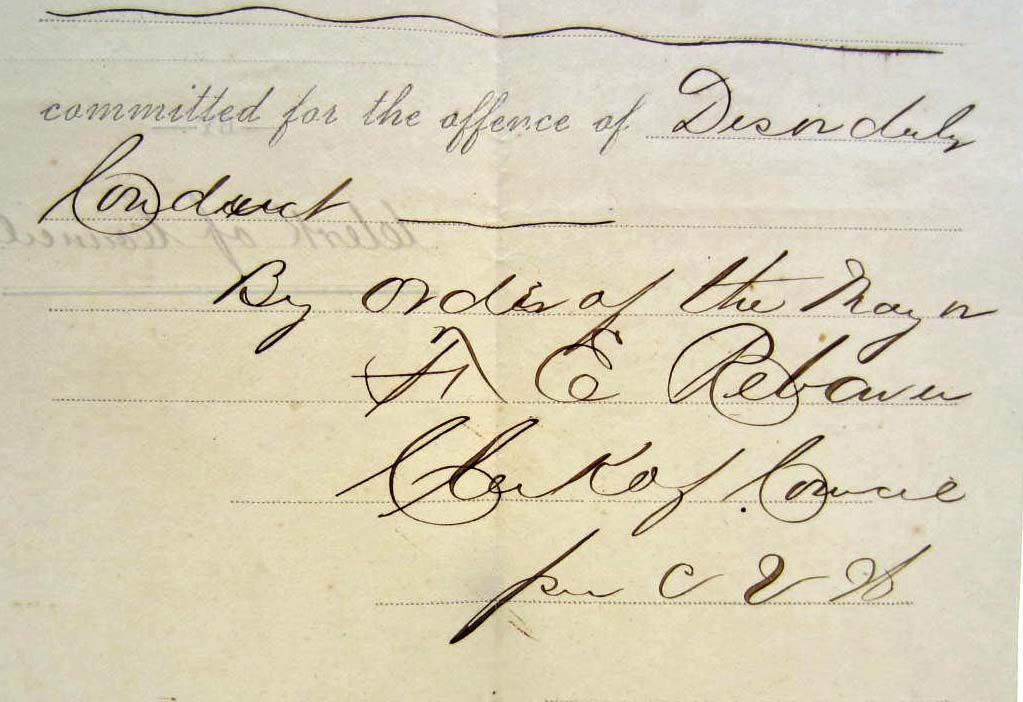 committed for the offence of Disorderly
Conduct
By order of the Mayor
F E Rebarer
Clerk of Council
per C V H